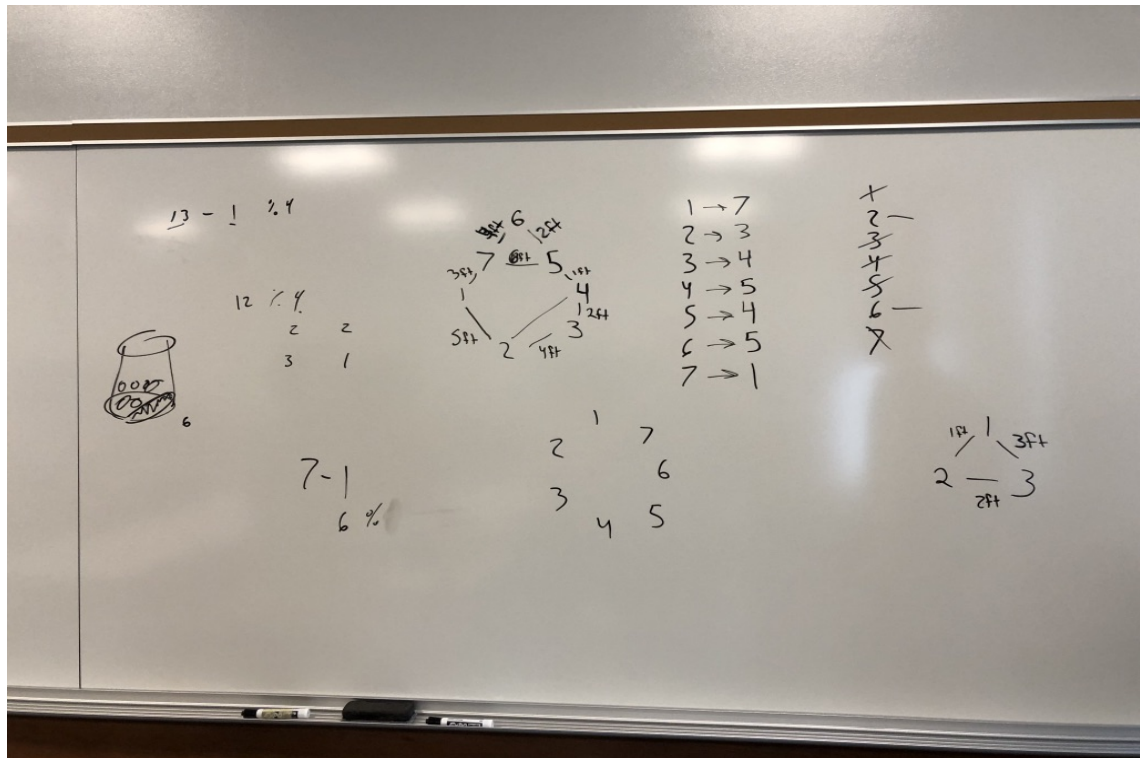 13 - 1 % 4
12 % 4
2 2
3 1
6
7-1
6 %
6
2ft
7 5
3ft 1ft
1 4
2ft
3
5ft 2 4ft
1 → 7
2 → 3
3 → 4
4 → 5
5 → 4
6 → 5
7 → 1
1
2 —
3
4
5
6 —
7
1
2 7
6
3
4 5
1ft 1 3ft
2 3
2ft